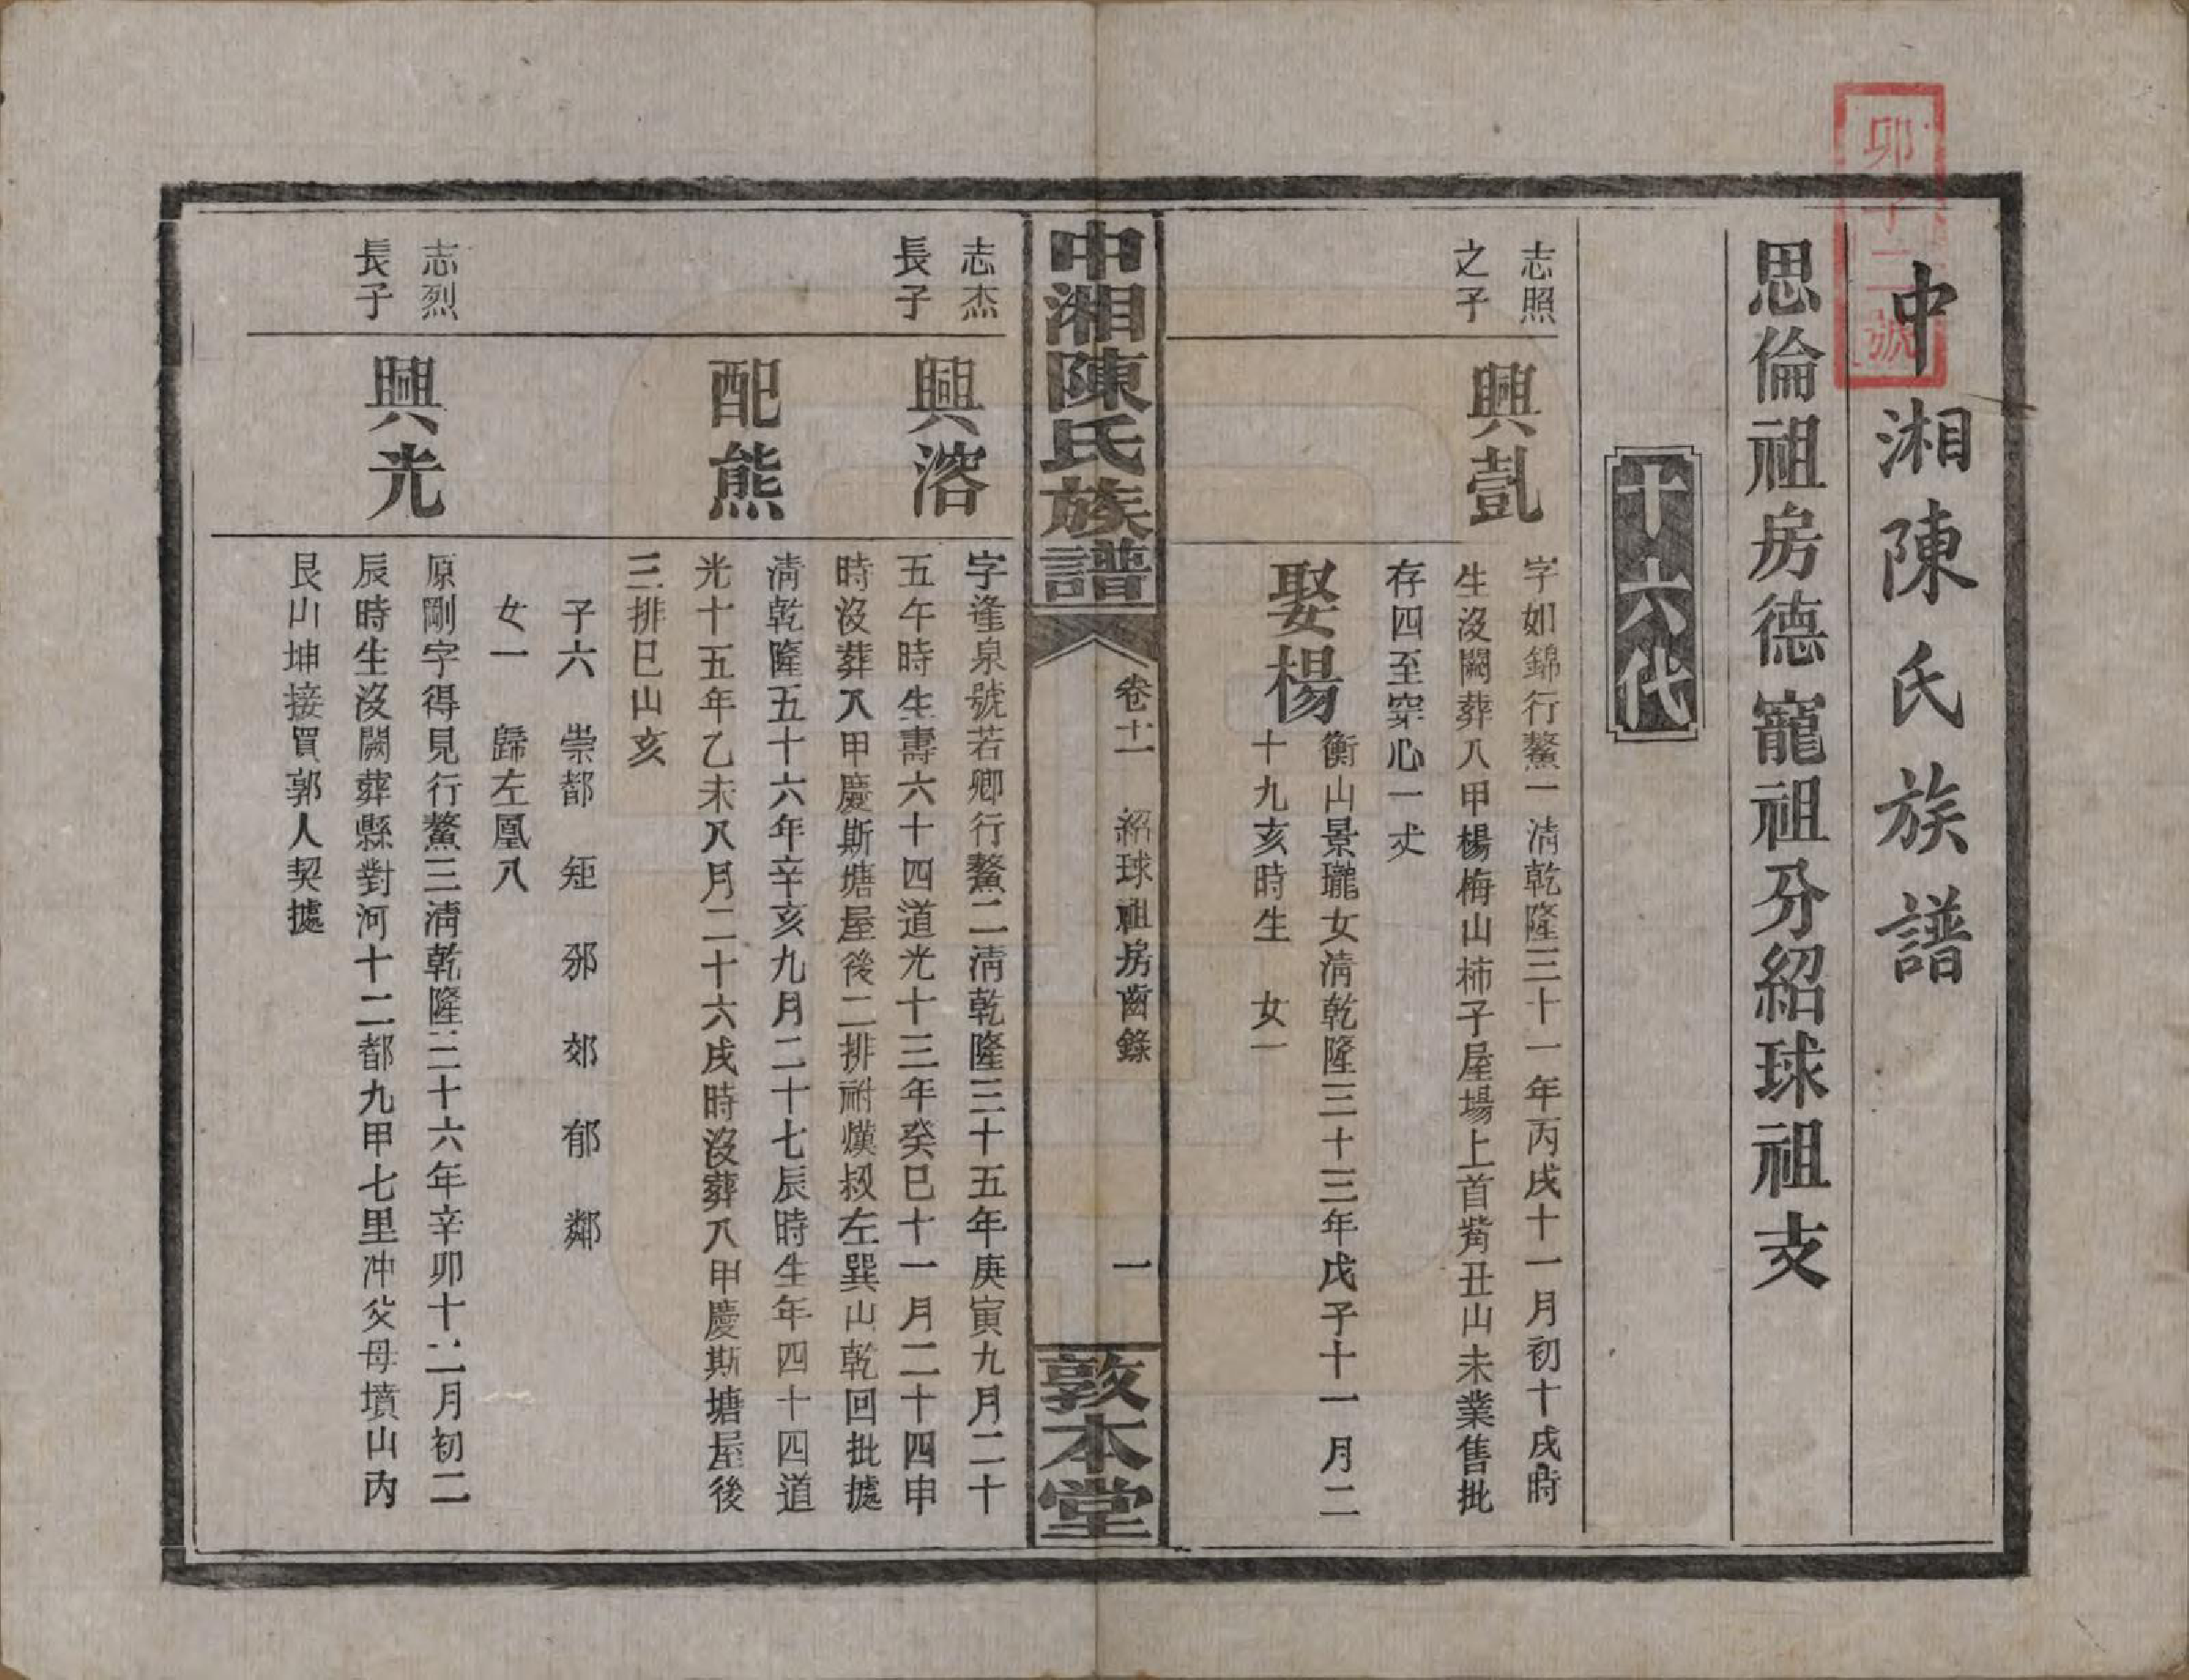 中湘陳氏族譜
思倫祖房德寵祖分紹球祖支
十六代
志照
之子
興凱
字如錦行鰲一清乾隆三十一年丙戌十一月初十戌時
生沒闕葬八甲楊梅山柿子屋場上首觜丑山未業售批
存四至穿心一丈
娶楊
衡山景瓏女清乾隆三十三年戊子十一月二
十九亥時生 女一
中湘陳氏族譜
卷十一 紹球祖房齒錄 一
敦本堂
志杰
長子
興溶
字逢泉號若卿行鰲二清乾隆三十五年庚寅九月二十
五午時生壽六十四道光十三年癸巳十一月二十四申
時沒葬八甲慶斯塘屋後二排祔熯叔左巽山乾回批據
配熊
清乾隆五十六年辛亥九月二十七辰時生年四十四道
光十五年乙未八月二十六戌時沒葬八甲慶斯塘屋後
三排巳山亥
子六 崇都 矩 邠 郊 郁 鄰
女一 歸左凰八
志烈
長子
興光
原剛字得見行鰲三清乾隆三十六年辛卯十二月初二
辰時生沒闕葬縣對河十二都九甲七里冲父母墳山內
艮山坤接買郭人契據